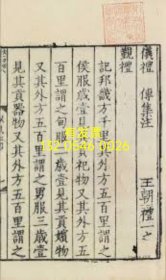 儀禮 傳集注
覲禮 王朝禮一之
記邦畿方千里其外方五百里謂之
侯服歲壹見其貢祀物又其外方五
百里謂之甸服二歲壹見其貢嬪物
又其外方五百里謂之男服三歲壹
見其貢器物又其外方五百里謂之
152 0546 0026